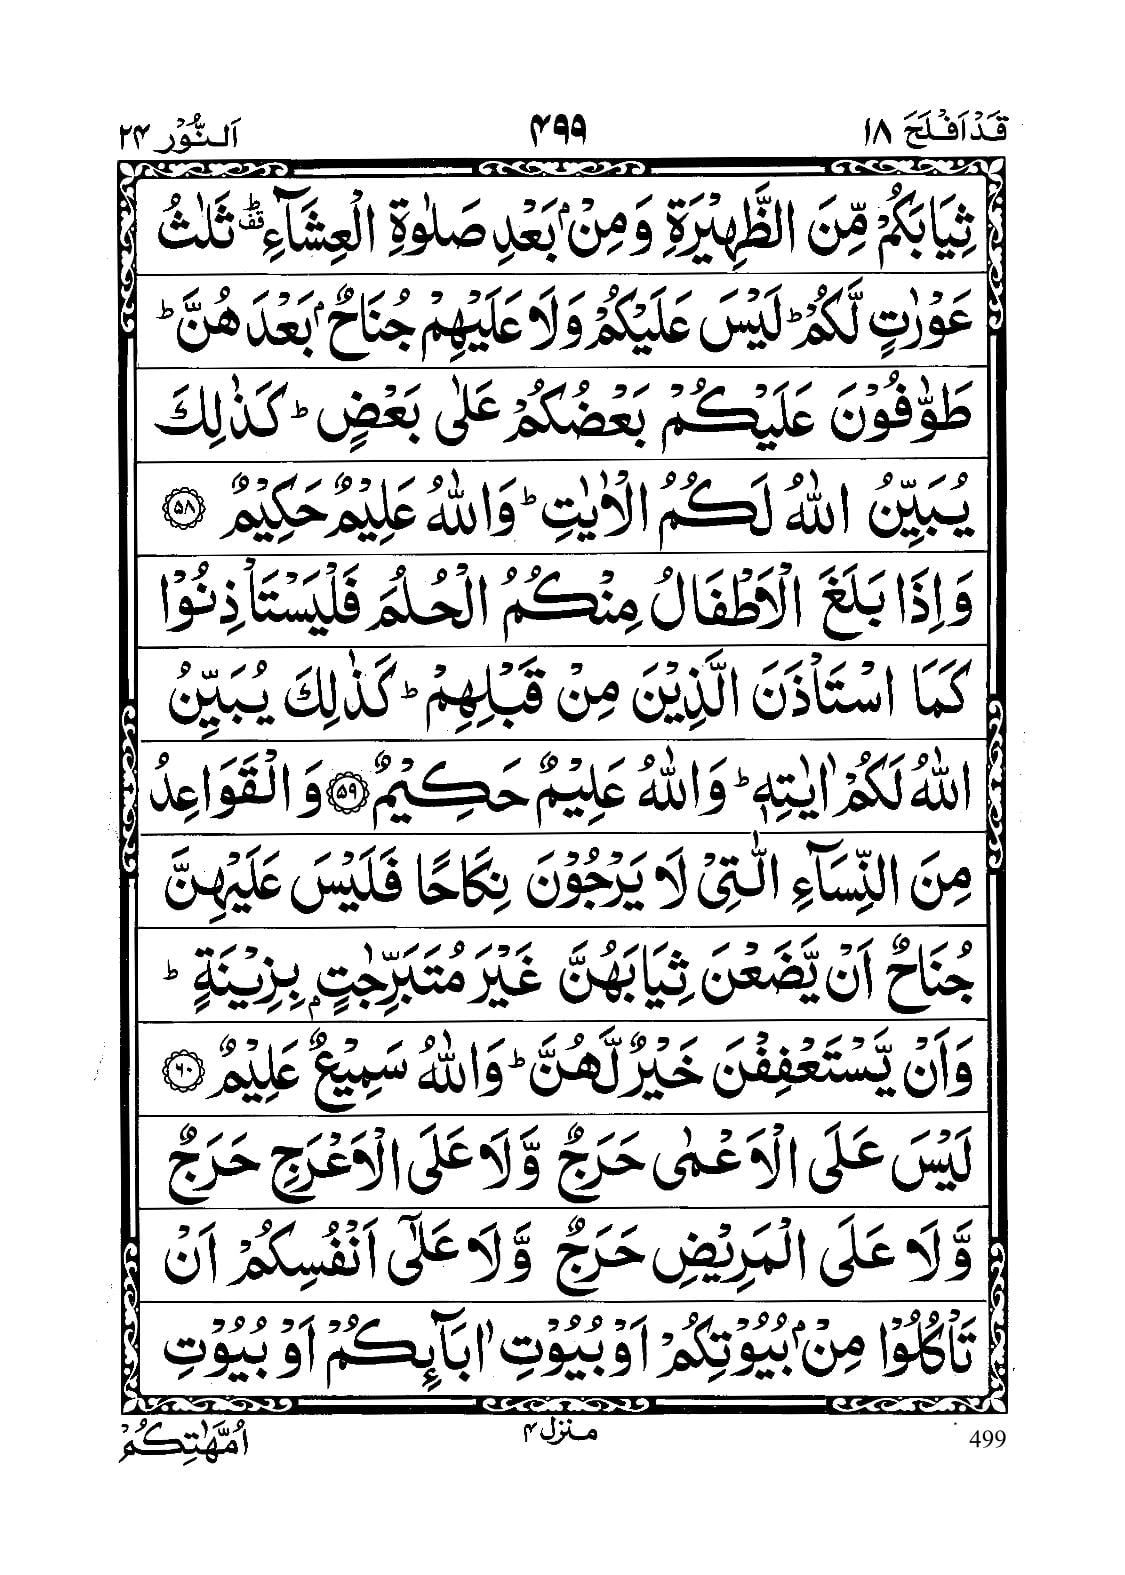 قَدْ اَفْلَحَ ۱۸ ۴۹۹ اَلنُّوْر ۲۴
ثِیَابَكُمْ مِّنَ الظَّهِیْرَةِ وَ مِنْۢ بَعْدِ صَلٰوةِ الْعِشَآءِ ؕ۫ ثَلٰثُ
عَوْرٰتٍ لَّكُمْ ؕ لَیْسَ عَلَیْكُمْ وَ لَا عَلَیْهِمْ جُنَاحٌۢ بَعْدَهُنَّ ؕ
طَوّٰفُوْنَ عَلَیْكُمْ بَعْضُكُمْ عَلٰی بَعْضٍ ؕ كَذٰلِكَ
یُبَیِّنُ اللّٰهُ لَكُمُ الْاٰیٰتِ ؕ وَ اللّٰهُ عَلِیْمٌ حَكِیْمٌ ﴿۵۸﴾
وَ اِذَا بَلَغَ الْاَطْفَالُ مِنْكُمُ الْحُلُمَ فَلْیَسْتَاْذِنُوْا
كَمَا اسْتَاْذَنَ الَّذِیْنَ مِنْ قَبْلِهِمْ ؕ كَذٰلِكَ یُبَیِّنُ
اللّٰهُ لَكُمْ اٰیٰتِهٖ ؕ وَ اللّٰهُ عَلِیْمٌ حَكِیْمٌ ﴿۵۹﴾ وَ الْقَوَاعِدُ
مِنَ النِّسَآءِ الّٰتِیْ لَا یَرْجُوْنَ نِكَاحًا فَلَیْسَ عَلَیْهِنَّ
جُنَاحٌ اَنْ یَّضَعْنَ ثِیَابَهُنَّ غَیْرَ مُتَبَرِّجٰتٍۭ بِزِیْنَةٍ ؕ
وَ اَنْ یَّسْتَعْفِفْنَ خَیْرٌ لَّهُنَّ ؕ وَ اللّٰهُ سَمِیْعٌ عَلِیْمٌ ﴿۶۰﴾
لَیْسَ عَلَی الْاَعْمٰی حَرَجٌ وَّ لَا عَلَی الْاَعْرَجِ حَرَجٌ
وَّ لَا عَلَی الْمَرِیْضِ حَرَجٌ وَّ لَا عَلٰۤی اَنْفُسِكُمْ اَنْ
تَاْكُلُوْا مِنْۢ بُیُوْتِكُمْ اَوْ بُیُوْتِ اٰبَآىِٕكُمْ اَوْ بُیُوْتِ
499 منزل ۴ اُمَّهٰتِكُمْ